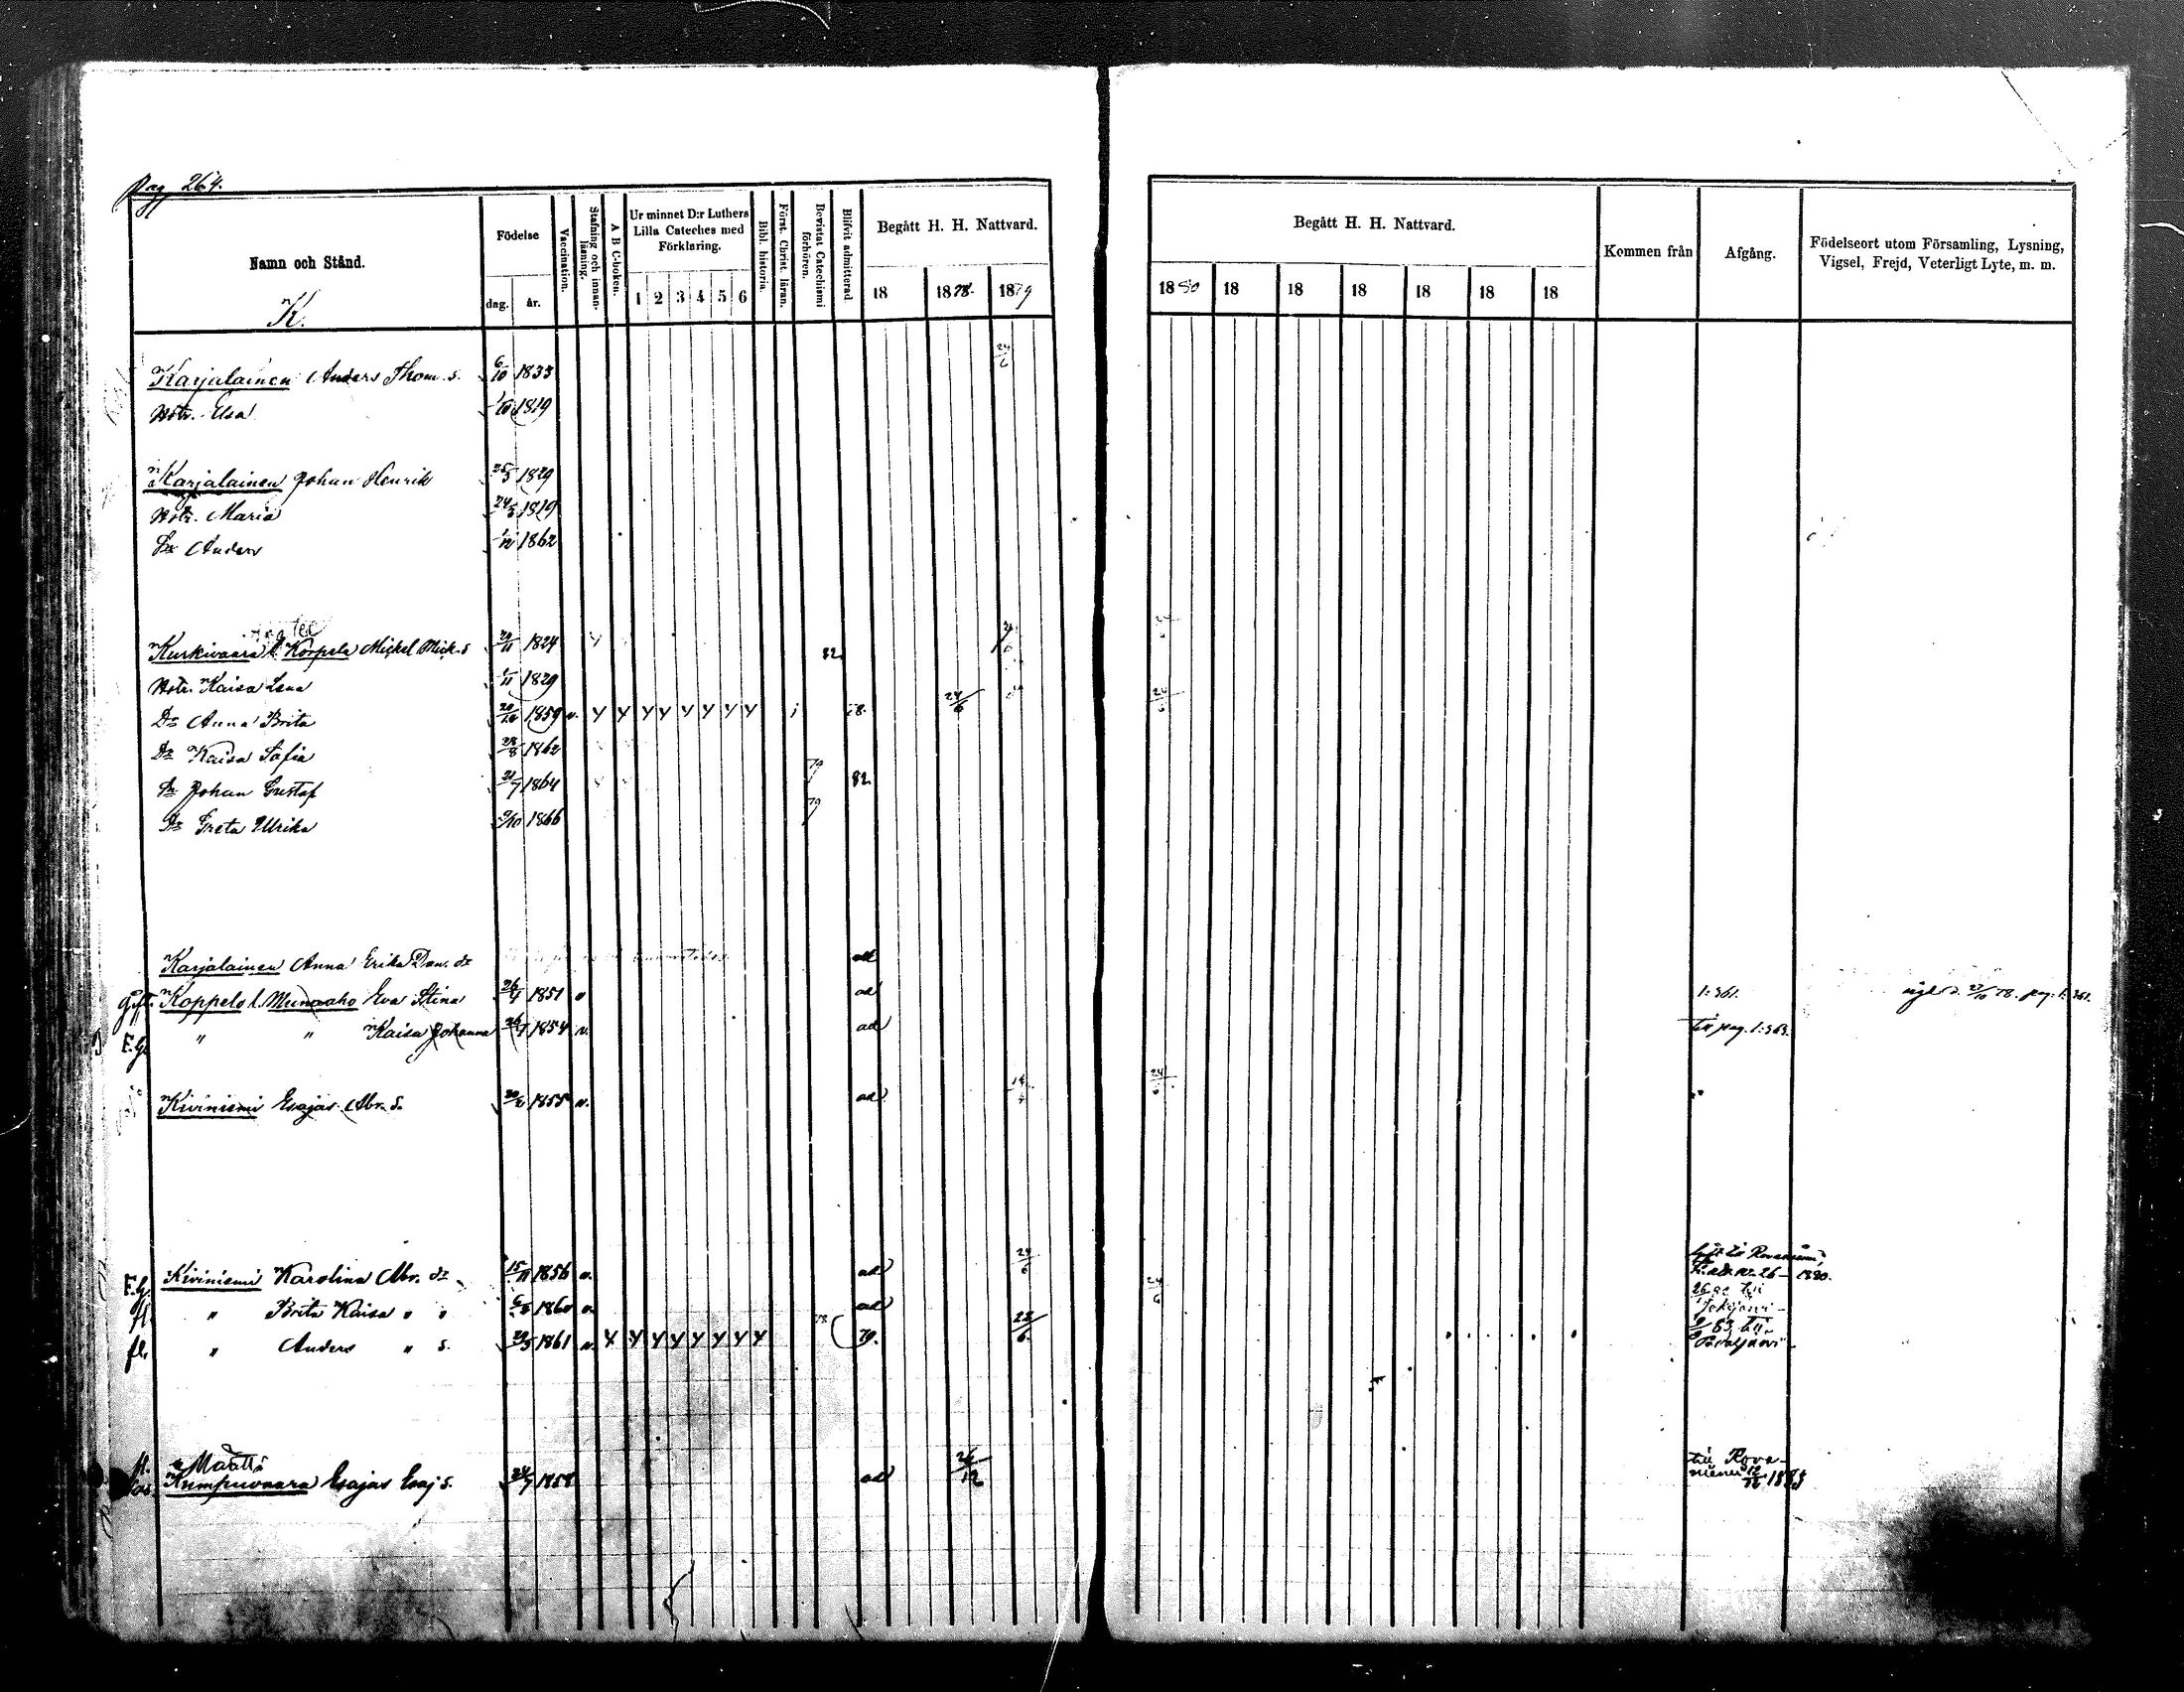 Pag 264.
Namn och Stånd. Födelse dag. år. Vaccination. Stafning och innan-läsning. A B C-boken. Ur minnet D:r Luthers Lilla Cateches med Förklaring. 1 2 3 4 5 6 Bibl. historia. Först. Christ. läran. Bevistat Catechismi förhören. Blifvit admitterad Begått H. H. Nattvard. 18 1878. 1879 Begått H. H. Nattvard. 1880 18 18 18 18 18 18 Kommen från Afgång. Födelseort utom Församling, Lysning, Vigsel, Frejd, Veterligt Lyte, m. m.
K.
Karjalainen Anders Thom. s. 6/10 1833 24/6
Hstr. Elsa 1/10 1819
Karjalainen Johan Henrik 1829
Hstr. Maria 1819
Sn Anders 1/12 1862
Kurkivaara l. Korpela Mickel Mick. s 29/11 1824 82.
Hstr. Kaisa Lena 1/11 1829
Dr Anna Brita 1859 v. Y Y Y Y Y Y Y Y i 78. 24/6 24/6
Dr Kaisa Sofia 28/8 1862
Sn Johan Gustaf 21/7 1864 79 82.
Dr Greta Ulrika 9/10 1866 79
Karjalainen Anna Erika Dan. dr ad
Gift. Koppelo l. Munaaho Eva Stina 26/4 1851 v ad 1:361. vigd d. 27/10 78. pag. 1:361.
F.G. " " Kaisa Johanna 26/7 1854 v. ad till pag. 1:363.
Kiviniemi Esajas Abr. s. 1855 v. ad 24/6
F.G. Kiviniemi Karolina Abr. dr 15/11 1856 v. ad 24/6 till Rovaniemi, 26 - 1880.
fl. " Brita Kaisa " " 1860 v. ad 24/6
fl. " Anders " s. 1861 v. Y Y Y Y Y Y Y Y 78 79. 23/6 83 till
Määttä
Kumpuvaara Esajas Esaj s. 24/7 1858 ad 26/12 till Rova-
niemi 12/12 1888